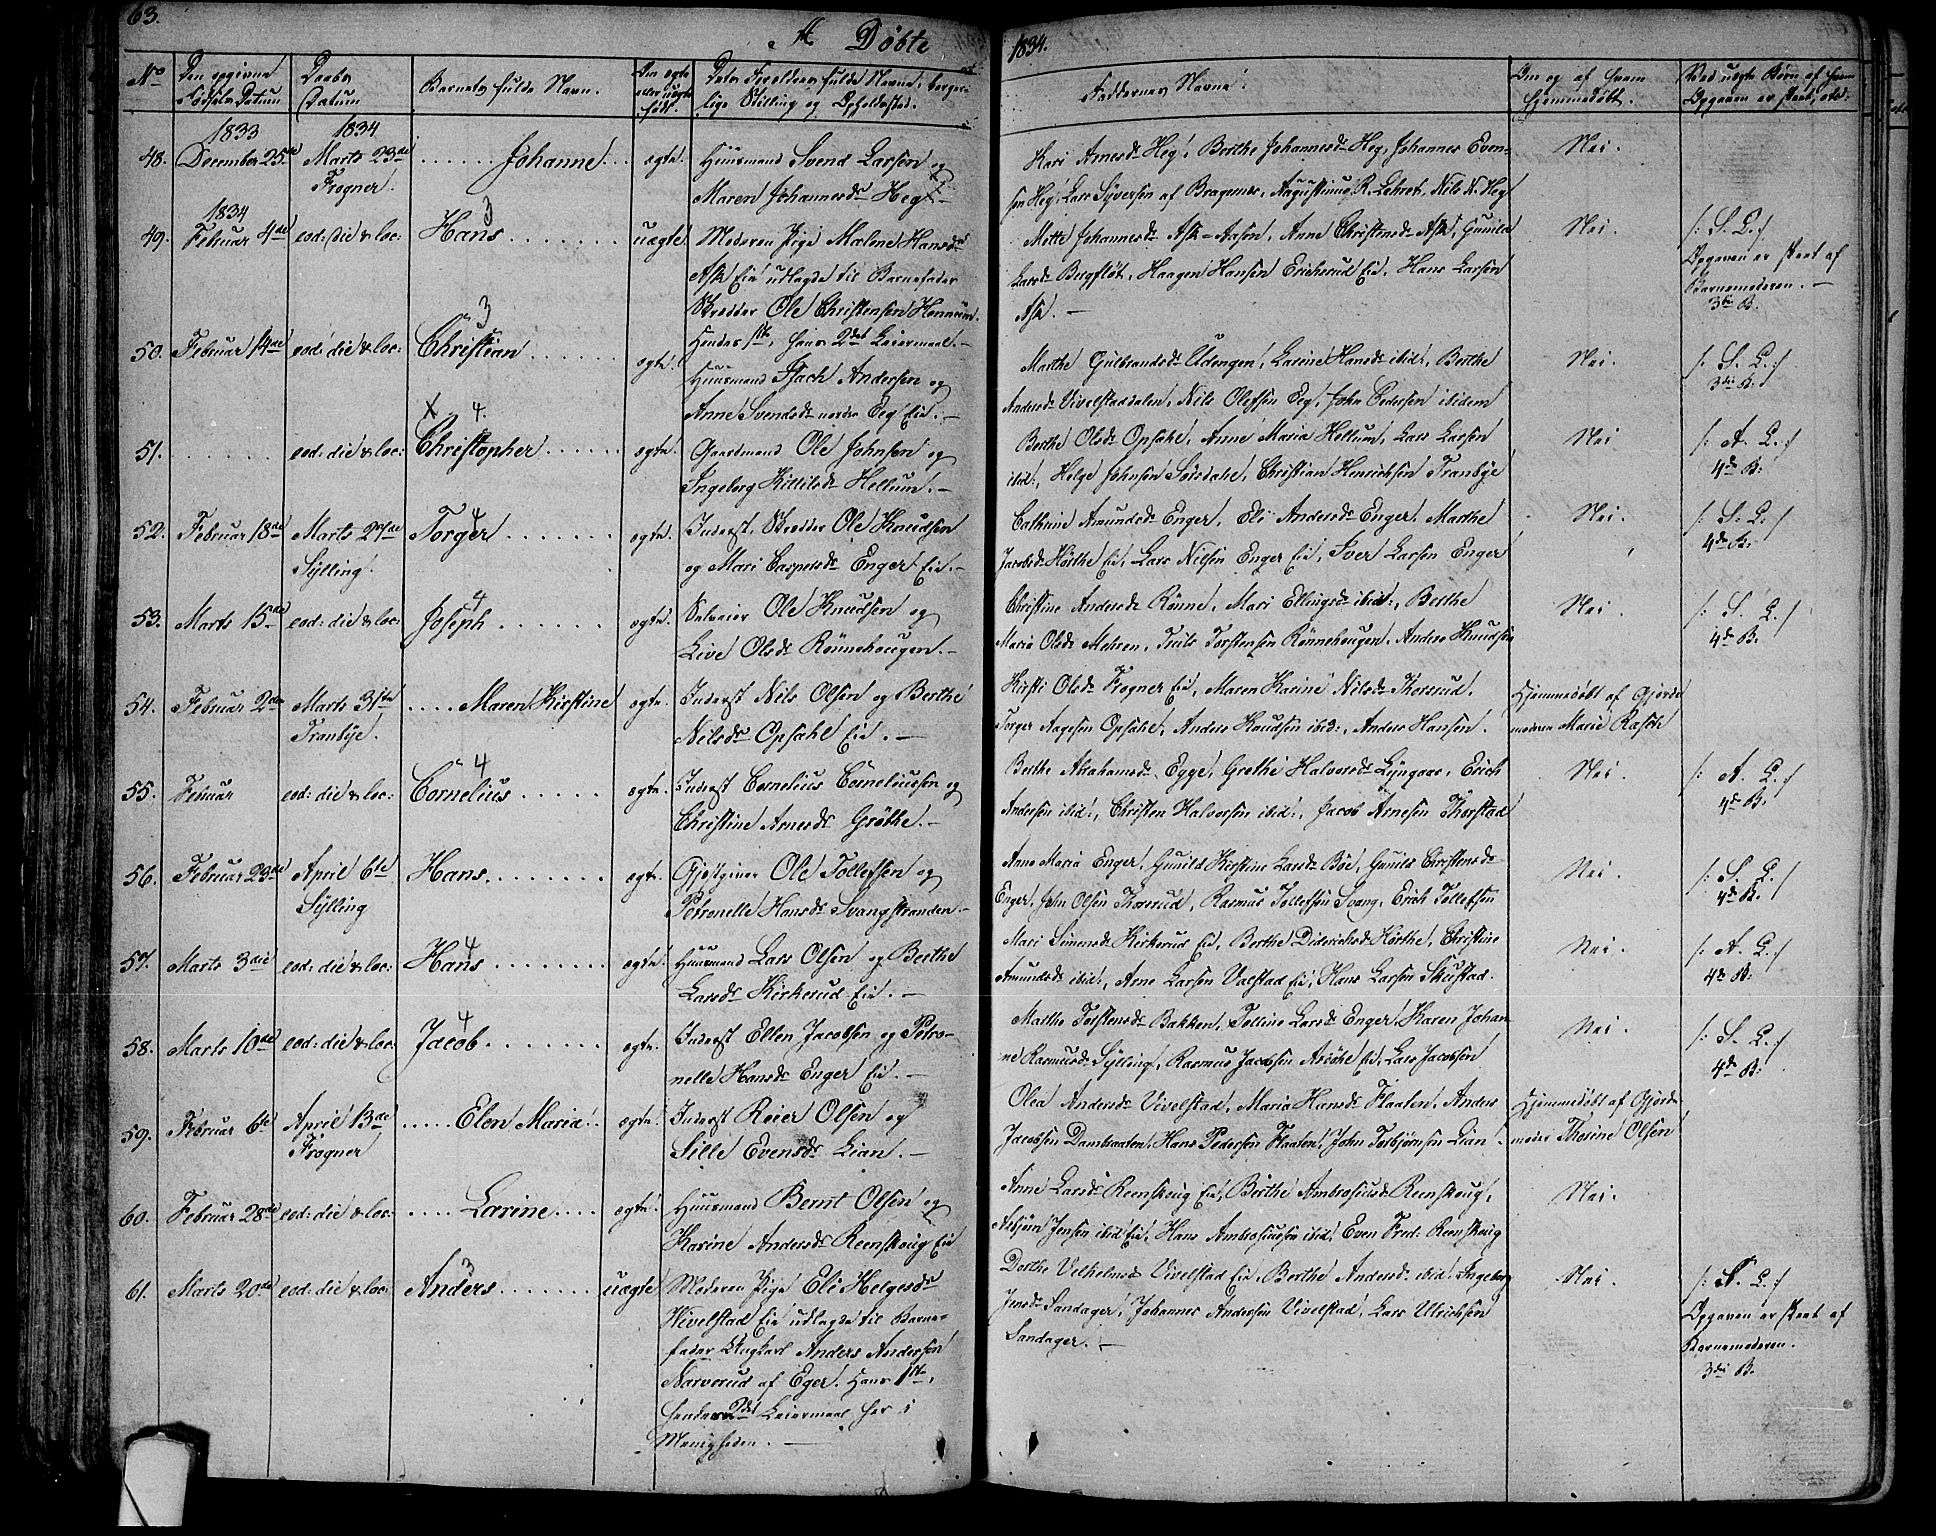 63.
A Döbte
1834.
No
Den opgivne Födsels Datum
Daabs Datum
Barnets fulde Navn.
Om ægte eller uægte födt.
Dets Forældres fulde Navne, borgerlige Stilling og Opholdssted.
Faddernes Navne.
Om og af hvem hjemmedöbt.
Ved uægte Börn af hvem Opgaven er skeet, etc:
1833
1834
48. December 25de Marts 23de ...... Johanne... ægte. Huusmand Svend Larsen og
Frogner. Maren Johannesdr Heg.-
Kari Arnesdr Heg, Berthe Johannesdr Heg, Johannes Even-
sen Heg, Lars Syversen af Bragernes, Augustinus R. Lehret, Nils N. Heg
Nei.
1834
3
49. Februar 4de eod: die & loc: Hans ....... uægte Moderen Pige Malene Hansdr
Ask Eie udlagde til Barnefader
Skredder Ole Christensen Hannevem.
Hendes 1ste, hans 2det Leiermaal.-
Mette Johannesdr Ask-Aasen, Anne Christensdr Ask, Gunild
Larsdr Bergfløt, Haagen Hansen Ericherud Eie, Hans Larsen
Ask.-
Nei.
/: S. L. :/
Opgaven er skeet af
Barnemoderen.-
3die B.
3
50. Februar 14de eod: die & loc: Christian ....... ægte. Huusmand Isach Andersen og
Anne Svendsdr nordre Eeg Eie.-
Marthe Gulbrandsdr Udengen, Larine Hansdr ibid:, Berthe
Andersdr Vivelstaddalen, Nils Olefsen Eeg, John Pedersen ibidem
Nei.
/: S. L. :/
3die B.
X 4.
51. ...... eod: die & loc: Christopher ...... ægte. Gaardmand Ole Johnsen og
Ingeborg Kittilsdr Hellum.-
Berthe Olsdr Opsahl, Anne Maria Hellum, Lars Larsen
ibid:, Helge Johnsen Sørsdahl, Christian Henrichsen Tranbye
Nei
/: A. L. :/
4de B.
4
52. Februar 18de Marts 27de Torger ....... ægte. Inderst Skredder Ole Knudsen
Sylling. og Mari Caspersdr Enger Eie.-
Cathrine Amundsdr Enger, Eli Andersdr Enger, Marthe
Jacobsdr Hörthe Eie, Lars Nielsen Enger Eie, Iver Larsen Enger
Nei.
/: S. L. :/
4de B.
4
53. Marts 15de eod: die & loc: Joseph ....... ægte. Selveier Ole Knudsen og
Live Olsdr Rønnehougen.-
Christine Andersdr Rönne, Mari Ellingsdr ibid:, Berthe
Maria Olsdr Mehren, Truls Torstensen Rönnehougen, Anders Knudsen
Nei.
/: S. L. :/
4de B.
54. Februar 2den Marts 31te .... Maren Kirstine ægte. Inderst Nils Olsen og Berthe
Tranbye. Nilsdr Opsahl Eie.-
Kirsti Olsdr Frogner Eie, Maren Karine Nilsdr Thorrud,
Torger Aagesen Opsahl, Anders Knudsen ibid:, Anders Hansen.
Hjemmedöbt af Gjorde
moderen Marie Rasch
4
55. Februar eod: die & loc: Cornelius ...... ægte. Inderst Cornelius Corneliussen og
Christine Arnesdr Gröthe.-
Berthe Abrahamsdr Egge, Grethe Halvorsdr Lyngaas, Erich
Andersen ibid:, Christen Halvorsen ibid:, Jacob Arnesen Thorstad
Nei.
/: A. L. :/
4de B.
56. Februar 23de April 6te Hans....... ægte. Gjestgiver Ole Tollefsen og
Sylling Petronelle Hansdr Svangstranden.-
Anne Maria Enger, Gunild Kirstine Larsdr Böe, Gunild Christensdr
Enger, John Olsen Thorerud, Rasmus Tollefsen Svang, Erich Tollefsen
Nei.
/: S. L. :/
4de B.
4
57. Marts 3die eod: die & loc: Hans ........ ægte. Huusmand Lars Olsen og Berthe
Larsdr Kirkerud Eie.-
Mari Simensdr Kirkerud Eie, Berthe Didrichsdr Hörthe, Christine
Amundsdr ibid:, Arne Larsen Valstad Eie, Hans Larsen Skustad.
Nei.
/: A. L. :/
4de B.
4
58. Marts 10de eod: die & loc: Jacob........ ægte. Inderst Ellen Jacobsen og Petro-
nelle Hansdr Enger Eie.-
Marthe Torstensdr Bakken, Olline Larsdr Enger, Karen Johan-
ne Rasmusdr Sylling, Rasmus Jacobsen Eie, Lars Jacobsen
Nei.
/: S. L. :/
4de B.
59. Februar 6te April 13de ..... Elen Maria. ægte. Inderst Reier Olsen og
Frogner Sille Evensdr Lian.-
Olea Andersdr Vivelstad, Maria Hansdr Flaaten, Anders
Jacobsen Dambraaten, Hans Pedersen Flaaten, John Torbjørnsen Lian.
Hjemmedöbt af Gjorde-
moder Thorine Olsen
60. Februar 28de eod: die & loc: ..... Larine.... ægte. Huusmand Bernt Olsen og
Karine Andersdr Reenskoug Eie
Anne Larsdr Reenskoug Eie, Berthe Ambrosiusdr Reenskoug,
Asbjørn Jensen ibid Eie, Hans Ambrosiussen ibid, Even Fred: Reenskoug
Nei.
3
61. Marts 20de eod: die & loc: Anders........ uægte Moderen Pige Eli Helgesdr
Vivelstad Eie udlagde til Barne-
fader Ungkarl Anders Andersen
Narverud af Eger. Hans 1ste,
hendes 2det Leiermaal her i
Menigheden.-
Dorthe Velhelmsdr Vivelstad Eie, Berthe Andersdr ibid:, Ingeborg
Jensdr Sandager, Johannes Andersen Vivelstad, Lars Ulrichsen
Sandager.-
Nei.
/: A. L. :/
Opgaven er skeet af
Barnemoderen.
3die B.